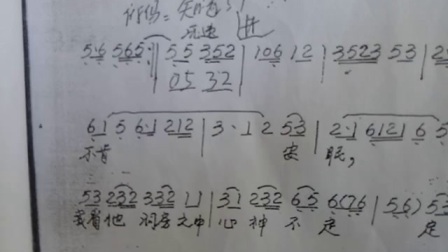 56 565·‖ 55 352 | 106 12 | 3523 53 | 2
05 32
61 5 6·1 212 | 3·1 2 53 | 2·1 6121 6 5
不肯 安 眠,
53 232 332 11 | 31 232 65 6(76 | 56) 53
我看他 洞房之中 心 神 不 定 定